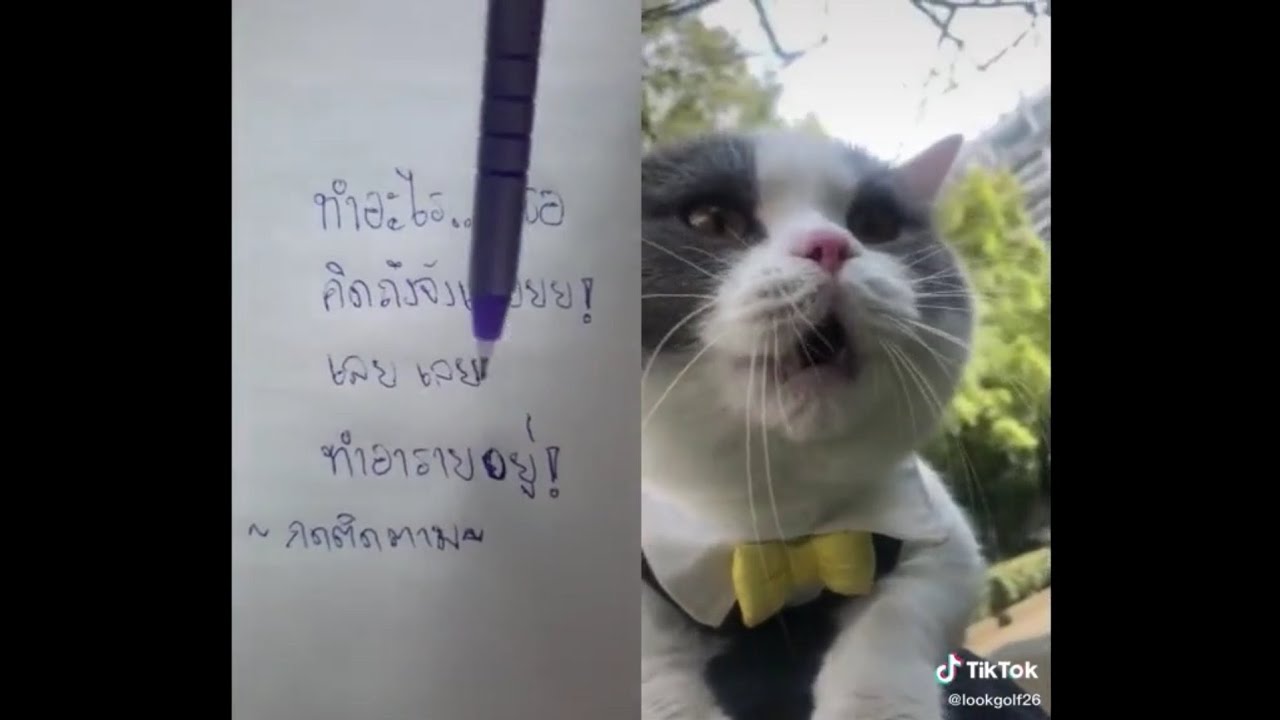 ทำอะไร..
คิดถึงจัง ยยย!
เลย เลย
ทำอารายอยู่!
~ กดติดตาม~
TikTok
@lookgolf26